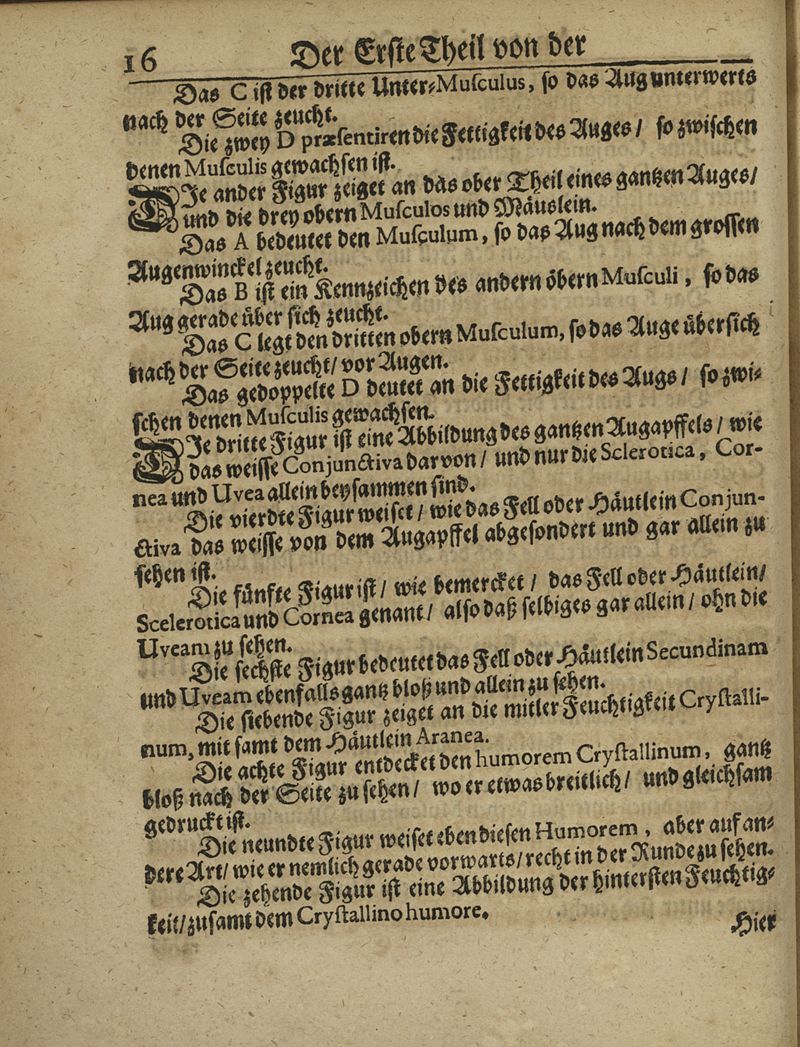 16 Der Erste Theil von der
Das C ist der dritte Unter-Musculus, so das Aug unterwerts
nach der Seite zeucht.
Die zwey D præsentiren die Fettigkeit des Auges / so zwischen
denen Musculis gewachsen ist.
DIe ander Figur zeiget an das ober Theil eines gantzen Auges /
und die drey obern Musculos und Mäuslein.
Das A bedeutet den Musculum, so das Aug nach dem grossen
Augenwinckel zeucht.
Das B ist ein Kennzeichen des andern öbern Musculi, so das
Aug gerade über sich zeucht.
Das C legt den dritten obern Musculum, so das Auge übersich
nach der Seite zeucht / vor Augen.
Das gedoppelte D deutet an die Fettigkeit des Augs / so zwi-
schen denen Musculis gewachsen.
DIe dritte Figur ist eine Abbildung des gantzen Augapffels / wie
das weisse Conjunctiva darvon / und nur die Sclerotica, Cor-
nea und Uvea allein beysammen sind.
Die vierdte Figur weiset / wie das Fell oder Häutlein Conjun-
ctiva das weisse von dem Augapffel abgesondert und gar allein zu
sehen ist.
Die fünfte Figur ist / wie bemercket / das Fell oder Häutlein /
Scelerotica und Cornea genant / also daß selbiges gar allein / ohn die
Uveam zu sehen.
Die sechste Figur bedeutet das Fell oder Häutlein Secundinam
und Uveam ebenfalls gantz bloß und allein zu sehen.
Die siebende Figur zeiget an die mitler Feuchtigkeit Crystalli-
num, mit samt dem Häutlein Aranea.
Die achte Figur entdecket den humorem Crystallinum, gantz
bloß nach der Seite zu sehen / wo er etwas breitlich / und gleichsam
gedruckt ist.
Die neundte Figur weiset eben diesen Humorem, aber auf an-
dere Art / wie er nemlich gerade vorwarts / recht in der Runde zu sehen.
Die zehende Figur ist eine Abbildung der hintersten Feuchtig-
keit / zusamt dem Crystallino humore.
Hier